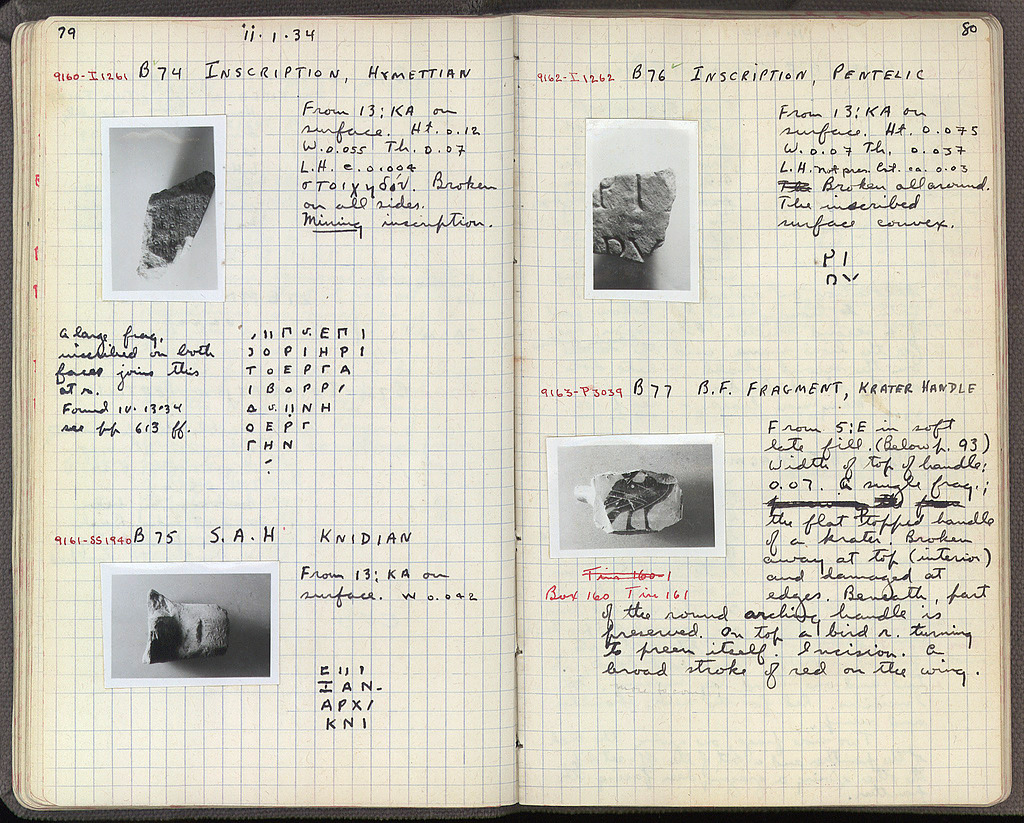 79
ii·1·34
9160-I1261 B74 INSCRIPTION, HYMETTIAN
From 13:KA on
surface. Ht. 0.12
W. 0.055 Th. 0.07
L.H. c. 0.004
στοιχηδόν. Broken
on all sides.
Mining inscription.
A large frag.
inscribed on both
faces joins this
at r.
Found iv·13·34
see pp 613 ff.
Ο Ρ Ι Η Ρ Ι
Τ Ο Ε Ρ Γ Α
Ι Β Ο Ρ Ρ /
Ο Ε Ρ Γ
Γ Η Ν
9161-SS1940 B75 S.A.H KNIDIAN
From 13:KA on
surface. W 0.042
Ξ Α Ν -
Α Ρ Χ /
Κ Ν Ι
80
9162-I1262 B76 INSCRIPTION, PENTELIC
From 13:KA on
surface. Ht. 0.075
W. 0.07 Th. 0.037
L.H. not pres. Est. ca. 0.03
Broken all around.
The inscribed
surface convex.
Ρ Ι
9163-P3039 B77 B.F. FRAGMENT, KRATER HANDLE
From 5:E in soft
late fill. (Below p. 93)
Width of top of handle:
0.07. A single frag.;
the flat topped handle
of a krater. Broken
away at top (interior)
and damaged at
edges. Beneath, part
Tin 160
Box 160 Tin 161
of the round arching handle is
preserved. On top a bird r. turning
to preen itself. Incision. A
broad stroke of red on the wing.